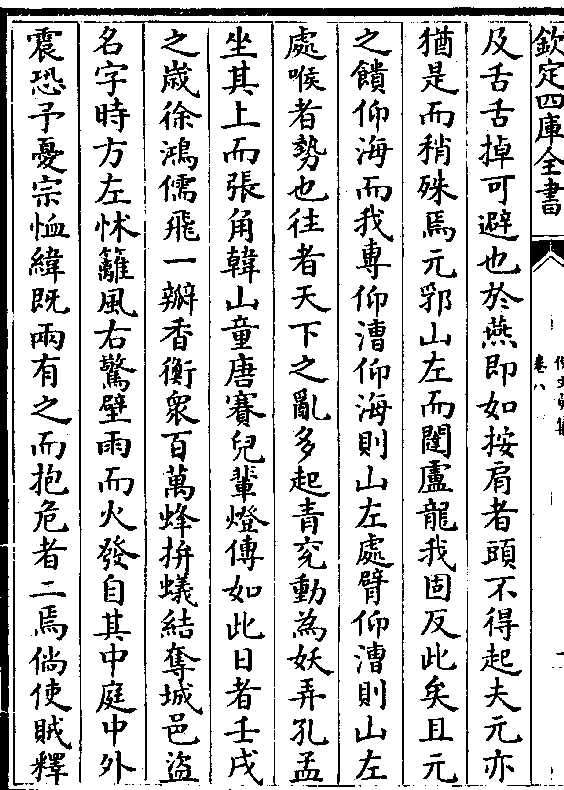 欽定四庫全書
卷八
及舌舌掉可避也於燕即如按肩者頭不得起夫元亦
猶是而稍殊焉元郛山左而閫盧龍我固反此矣且元
之饋仰海而我專仰漕仰海則山左處臂仰漕則山左
處喉者勢也往者天下之亂多起青兖動為妖弄孔孟
坐其上而張角韓山童唐賽兒輩燈傳如此日者壬戌
之歲徐鴻儒飛一瓣香衡衆百萬蜂拚蟻結奪城邑盜
名字時方左怵籬風右驚壁雨而火發自其中庭中外
震恐予憂宗恤緯既兩有之而抱危者二焉倘使賊釋